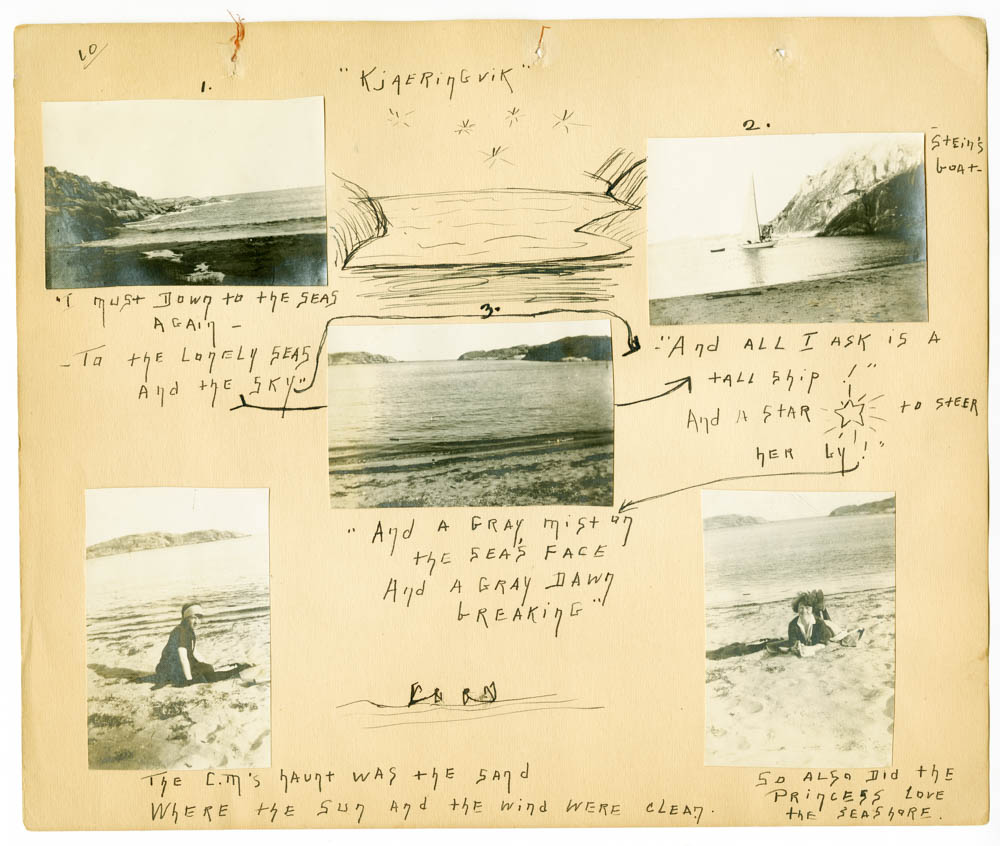 10
"Kjaeringvik"
1.
"I must Down to the seas
Again –
– To the Lonely seas
And the sky"
2.
Stein's
boat –
– "And all I ask is a
tall ship !"
And a star to steer
her by !"
3.
"And a gray mist on
the sea's face
And a gray dawn
breaking"
The C.M's haunt was the sand
Where the sun and the wind were clean.
So also did the
Princess love
the seashore.